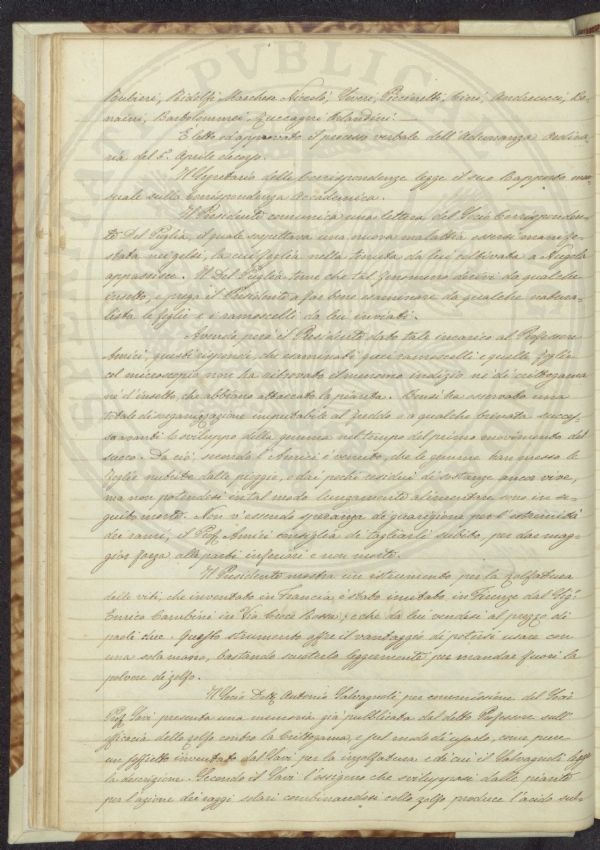 Rubieri, Ridolfi Marchese Niccolò, Siveri, Piccinetti, Cini, Andreucci, Ra-
naini, Bartolommei, Zuccagni Orlandini.
È letto ed approvato il processo verbale dell'Adunanza Ordina-
ria del 5. Aprile decorso.
Il Segretario delle Corrispondenze legge il suo Rapporto men-
suale sulla Corrispondenza Accademica.
Il Presidente comunica una lettera del Socio Corrisponden-
te Del Puglia, il quale sospettava una nuova malattia essersi manife-
stata nei gelsi, la cui foglia nella tenuta da lui coltivata a Nugola
appassisce. Il Del Puglia teme che tal fenomeno derivi da qualche
insetto, e prega il Presidente a far bene esaminare da qualche natura-
lista le foglie e i ramoscelli da lui inviati.
Avendo però il Presidente dato tale incarico al Professore
Amici, questi rispondi, che esaminati quei ramoscelli e quelle foglie
col microscopio non ha ritrovato il menomo indizio nè di crittogama
nè d'insetto, che abbiano attaccato la pianta. Bensì ha osservato una
totale disorganizzazione imputabile al freddo o a qualche brinata succes-
sa avanti lo sviluppo della gemma nel tempo del primo movimento del
succo. Da ciò, secondo l'Amici è venuto, che le gemme han messo le
foglie nutrite dalle piogge, e dai pochi residui di sostanze anco vive,
ma non potendosi in tal modo lungamente alimentare sono in se-
guito morte. Non v'essendo speranza di guarigione per l'estremità
dei rami, il Prof. Amici consiglia di tagliarli subito, per dar mag-
gior forza alle parti inferiori e non morte.
Il Presidente mostra un istrumento per la zolfatura
delle viti, che inventato in Francia, è stato imitato in Firenze dal Sig.r
Enrico Cambini in Via Croce Rossa, e che da lui vendesi al prezzo di
paoli due. Questo strumento offre il vantaggio di potersi usare con
una sola mano, bastando scuoterlo leggermente per mandar fuori la
polvere di zolfo.
Il Socio Dott. Antonio Salvagnoli per commissione del Socio
Prof. Savi presenta una memoria già pubblicata dal detto Professore sull'
efficacia dello zolfo contro la Crittogama, e sul modo di usarlo, come pure
un soffietto inventato dal Savi per la insolfatura e di cui il Salvagnoli legge
la descrizione. Secondo il Savi l'ossigeno che sviluppasi dalle piante
per l'azione dei raggi solari combinandosi collo zolfo produce l'acido sul-